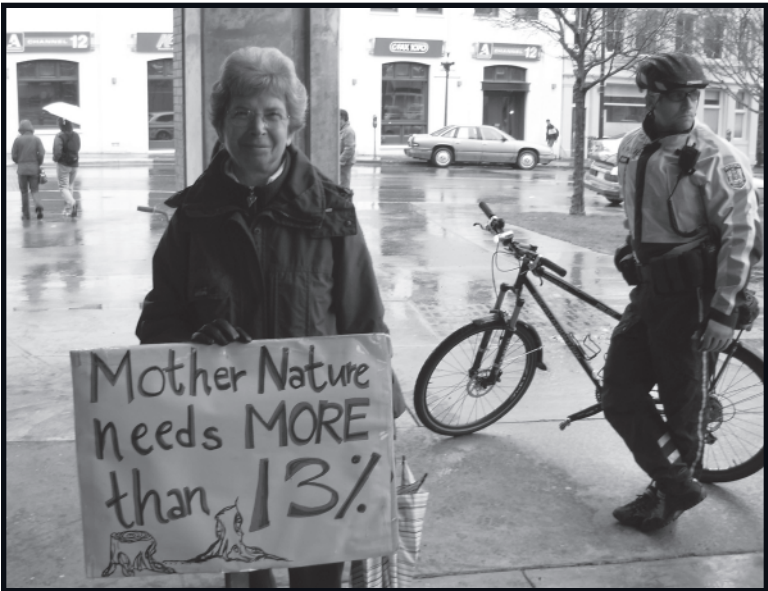 CHANNEL 12
A CHANNEL 12
Mother Nature
needs MORE
than 13%